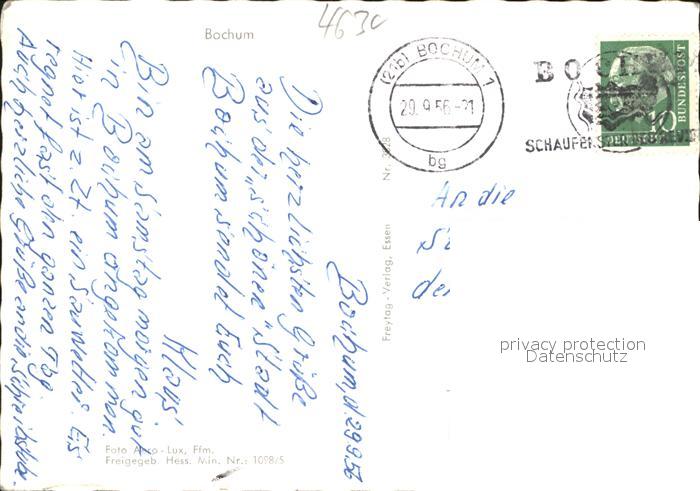 4630
Bochum
(21b) BOCHUM 1
29.9.56-21
bg
BOCHUM
SCHAUFENSTER
BUNDESPOST
10
Bochum, d. 29.9.56
Die herzlichsten Grüße
aus der „schönen" Stadt
Bochum sendet Euch
Klaus!
Bin am Samstag morgen gut
in Bochum angekommen.
Hier ist z. Zt. ein Sauwetter. Es
regnet fast den ganzen Tag.
Auch herzliche Grüße an die
An die
de
Nr.
Freytag-Verlag, Essen
Foto Aero-Lux, Ffm.
Freigegeb. Hess. Min. Nr.: 1098/5
privacy protection
Datenschutz